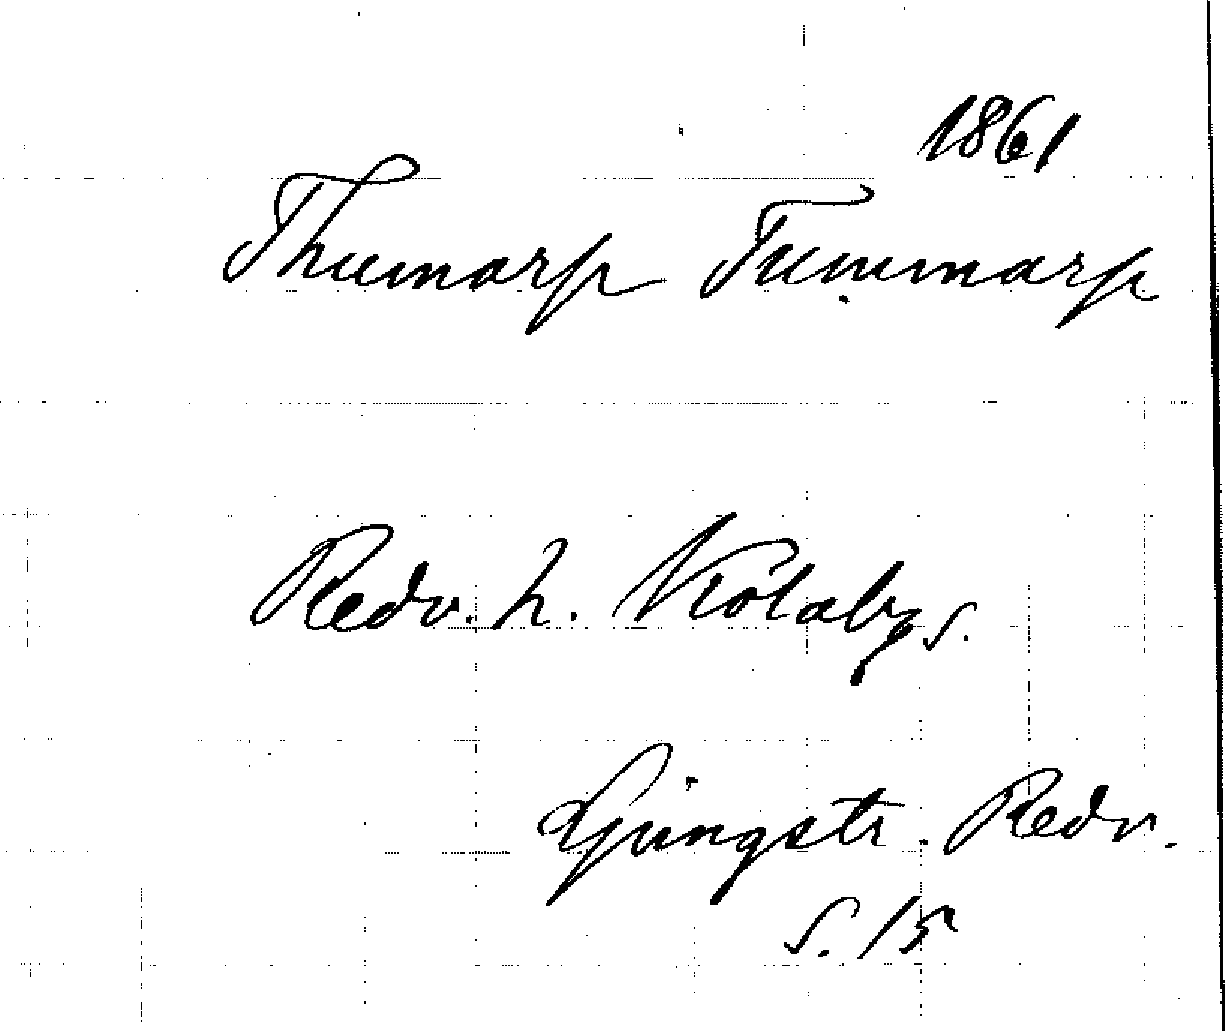 1861
Thumarp Tummarp
Redv. h. Kölabys.
Ljungstr. Redv.
S. 15